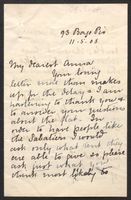 93 Bays Rd
11-5-03
My dearest Anna
Your loving
letter more than makes
up for the delay & I am
hastening to thank you &
to answer your questions
about the flat. In
order to have people like
the Sabatiers I would
ask only what and they
are able to give so please
ask just what you
think most likely to